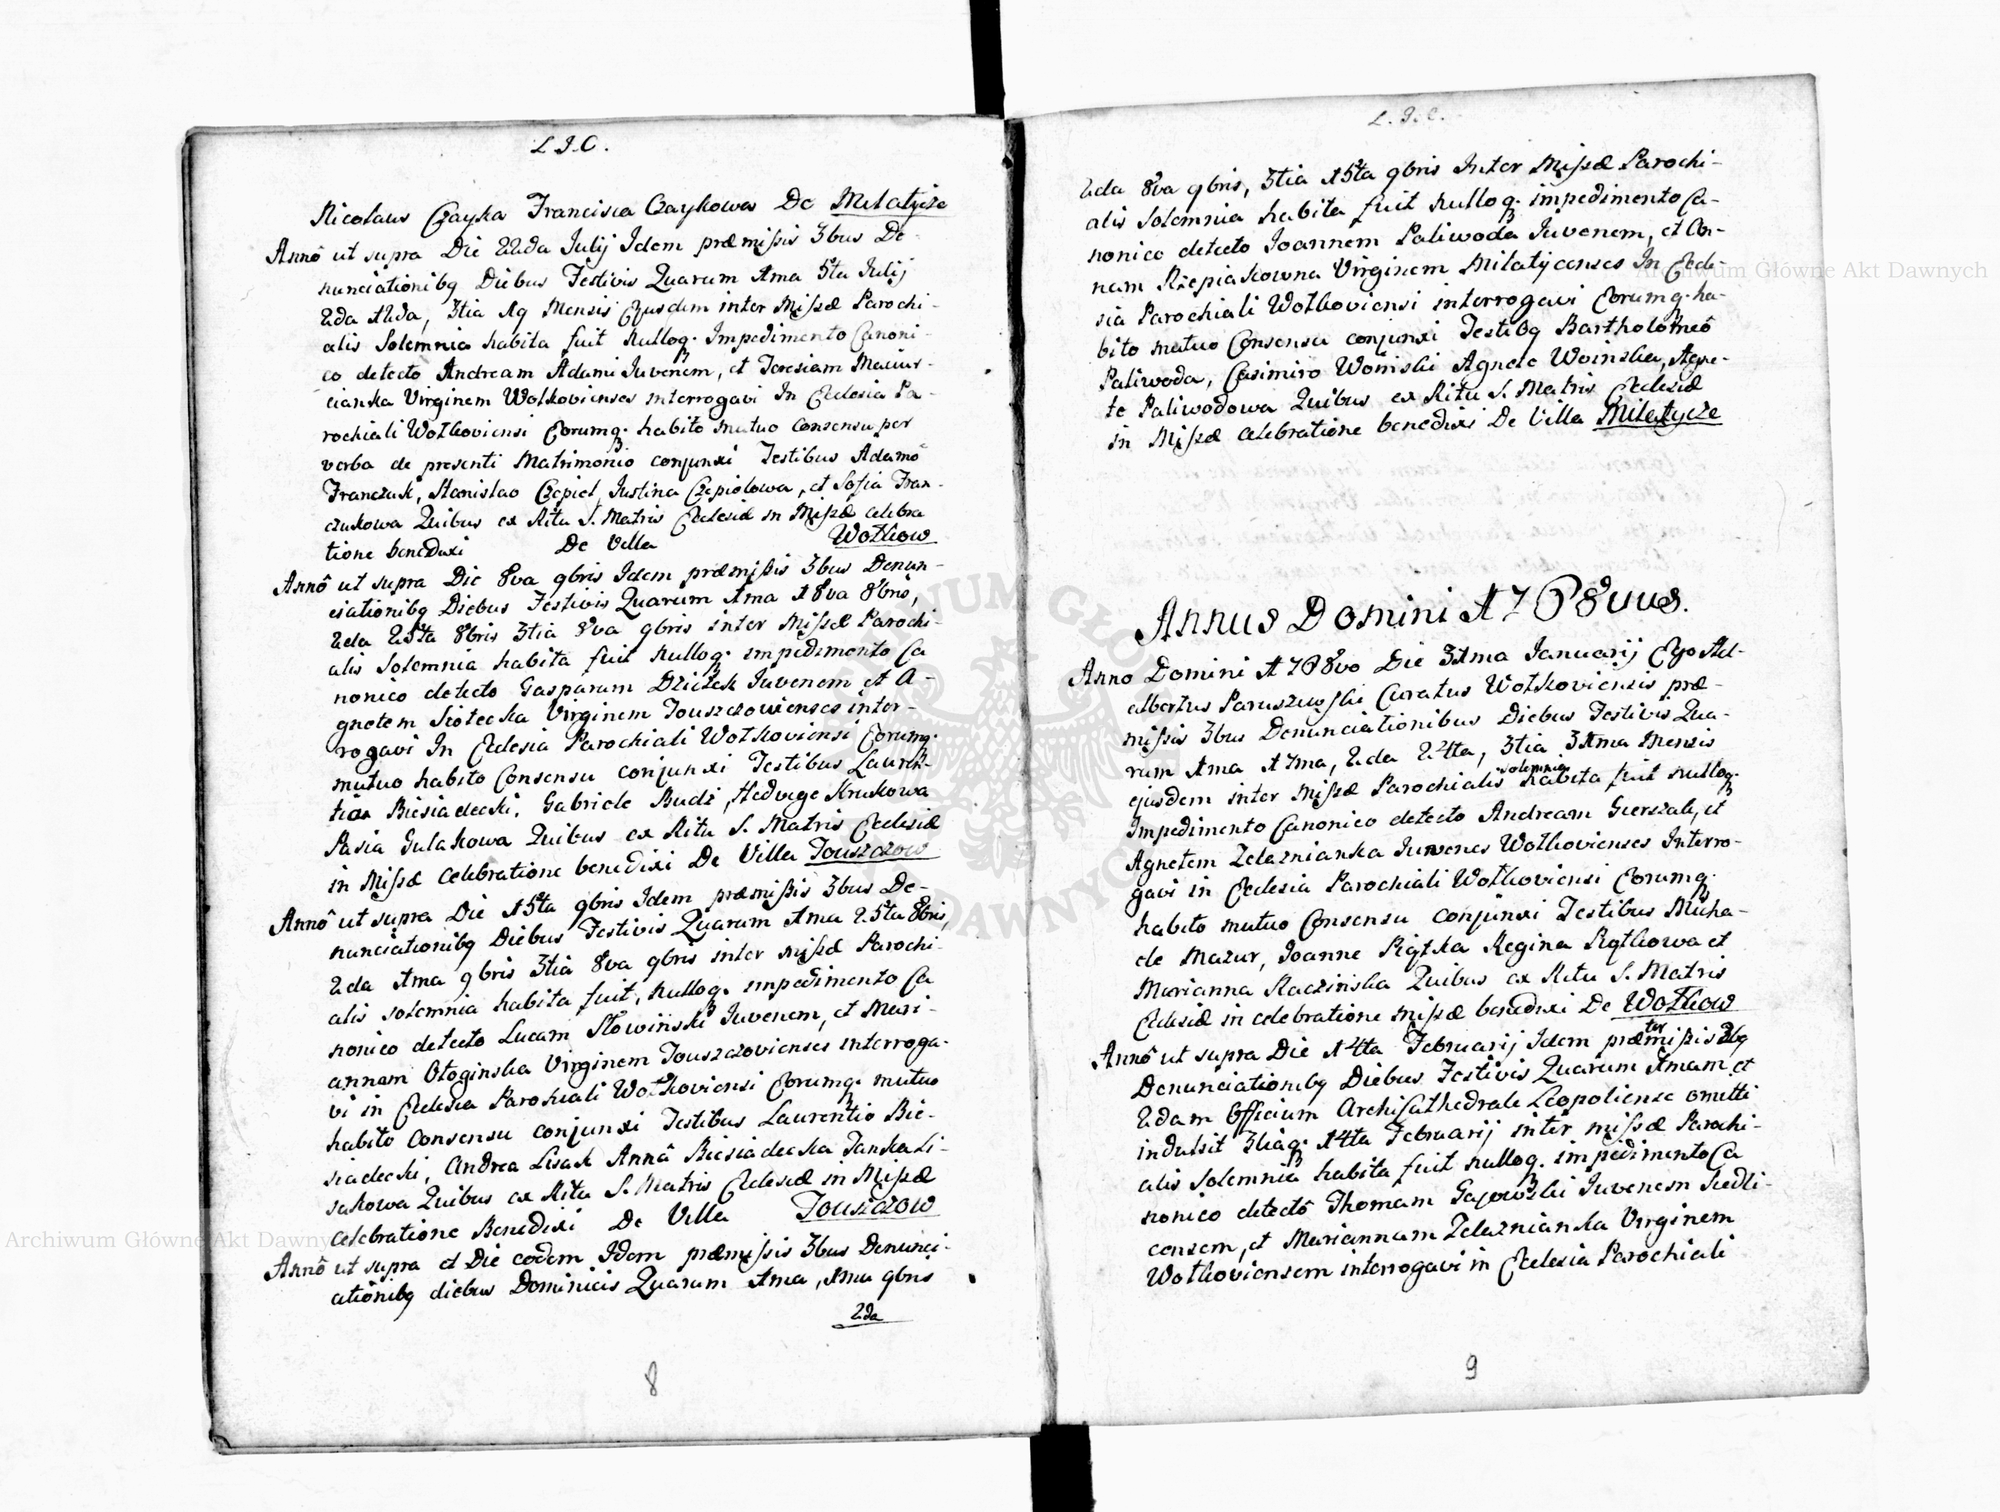 L J. C.
Nicolaus Czayka Francisca Czaykowa De Milatycze
Annô ut supra Die 22da Julij Idem præmissis 3bus De-
nunciationibq Diebus Festivis Quarum 1ma 5ta Julij
2da 12da, 3tia 19 Mensis Ejusdem inter Missæ Parochi-
alis Solemnia habita fuit Nulloq. Impedimento Canoni-
co detecto Andream Adami Juvenem, et Teresiam Maciur-
cianka Virginem Wołkovienses interrogavi In Ecclesia Pa-
rochiali Wołkoviensi Eorumq. habito mutuo Consensu per
verba de presenti Matrimonio conjunxi Testibus Adamô
Franczuk, Stanislao Czepiel, Justina Czepiolowa, et Sofia Fran-
czukowa Quibus ex Ritu S. Matris Ecclesiæ in Missæ celebra
tione benedixi De Villa Wołkow
Annô ut supra Die 8va 9bris Idem præmissis 3bus Denun-
ciationibq Diebus Festivis Quarum 1ma 18va 8bris,
2da 25ta 8bris 3tia 8va 9bris inter Missæ Parochi-
alis Solemnia habita fuit Nulloq. impedimento Ca
nonico detecto Gasparum Dziczek Juvenem et A-
gnetem Siotecka Virginem Touszczovienses inter-
rogavi In Ecclesia Parochiali Wołkoviensi Eorumq.
mutuo habito Consensu conjunxi Testibus Lauren-
tio Biesiadecki, Gabriele Budz, Hedvige Krukowa
Pasia Gulakowa Quibus ex Ritu S. Matris Ecclesiæ
in Missæ Celebratione benedixi De Villa Touszczow
Annô ut supra Die 15ta 9bris Idem præmissis 3bus De-
nunciationibq Diebus Festivis Quarum 1ma 25ta 8bris,
2da 1ma 9bris 3tia 8va 9bris inter Missæ Parochi-
alis solemnia habita fuit, Nulloq. impedimento Ca
nonico detecto Lucam Słowiński Juvenem, et Mari-
annam Otoginska Virginem Touszczovienses interroga-
vi in Ecclesia Parohiali Wołkoviensi Eorumq. mutuo
habito Consensu conjunxi Testibus Laurentio Bie-
siadecki, Andrea Lisak Annâ Biesiadecka Tanska Li-
sakowa Quibus ex Ritu S. Matris Ecclesiæ in Missæ
celebratione Benedixi De Villa Touszczow
Annô ut supra et Die eodem Idem præmissis 3bus Denunci-
ationibq diebus Dominicis Quarum 1ma, 1ma 9bris
2da
8
L. J. C.
2da 8va 9bris, 3tia 15ta 9bris Inter Missæ Parochi-
alis Solemnia habita fuit Nulloq. impedimento Ca-
nonico detecto Joannem Paliwoda Juvenem, et An-
nam Rzepiakowna Virginem Milatycenses In Eccle-
sia Parochiali Wołkoviensi interrogavi Eorumq. ha-
bito mutuo Consensu conjunxi Testibq Bartholomeô
Paliwoda, Casimiro Woinski Agnete Woinska, Agne-
te Paliwodowa Quibus ex Ritu S. Matris Ecclesiæ
in Missæ celebratione benedixi De Villa Milatycze
Annus Domini 1768vus.
Anno Domini 1768vo Die 31ma Januarij Ego Adal-
albertus Paruszewski Curatus Wołkoviensis præ-
missis 3bus Denunciationibus Diebus Festivis Qua-
rum 1ma 17ma, 2da 24ta, 3tia 31ma Mensis
ejusdem inter Missæ Parochialis solemnia habita fuit nulloq.
Impedimento Canonico detecto Andream Gierszak, et
Agnetem Zelaznianka Juvenes Wołkovienses Interro-
gavi in Ecclesia Parochiali Wołkoviensi Eorumq.
habito mutuo Consensu conjunxi Testibus Micha-
ele Mazur, Joanne Piątka Regina Piątkowa et
Marianna Raczińska Quibus ex Ritu S. Matris
Ecclesiæ in celebratione missæ benedixi De Wołkow
Annô ut supra Die 14ta Februarij Idem præmissis ter 3bq
Denunciationibq Diebus Festivis Quarum 1mam et
2dam Officium Archicathedrale Leopoliense omitti
indulsit 3tiaq. 14ta Februarij inter missæ Parochi-
alis Solemnia habita fuit nulloq. impedimento Ca
nonico detectô Thomam Gajowski Juvenem Siedli-
censem, et Mariannam Zelaznianka Virginem
Wołkoviensem interrogavi in Ecclesia Parochiali
9
Archiwum Główne Akt Dawnych
Archiwum Główne Akt Dawnych
ARCHIWUM GŁÓWNE AKT DAWNYCH